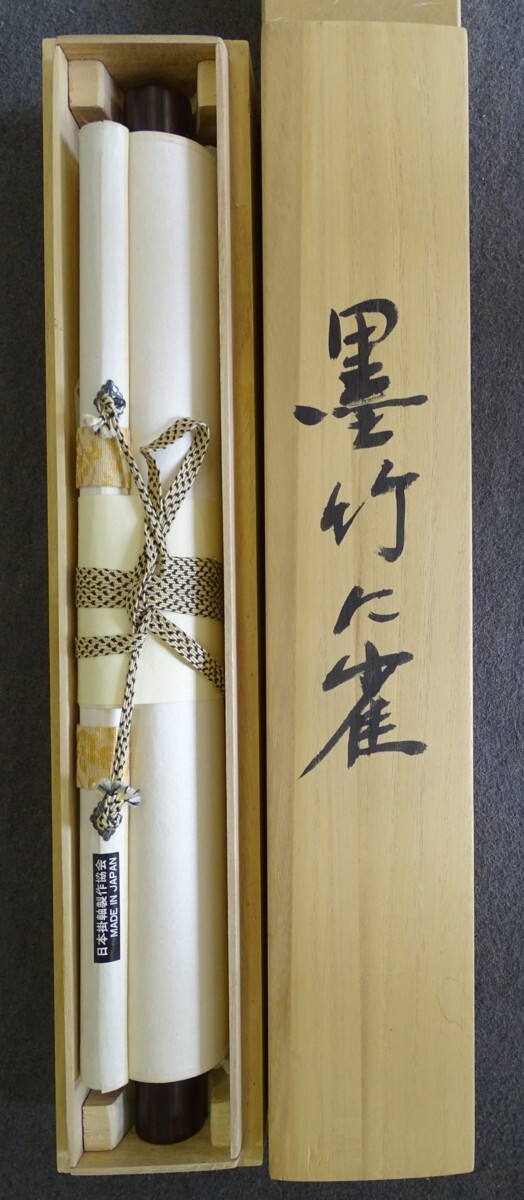 墨竹に雀
日本掛軸製作協会
MADE IN JAPAN